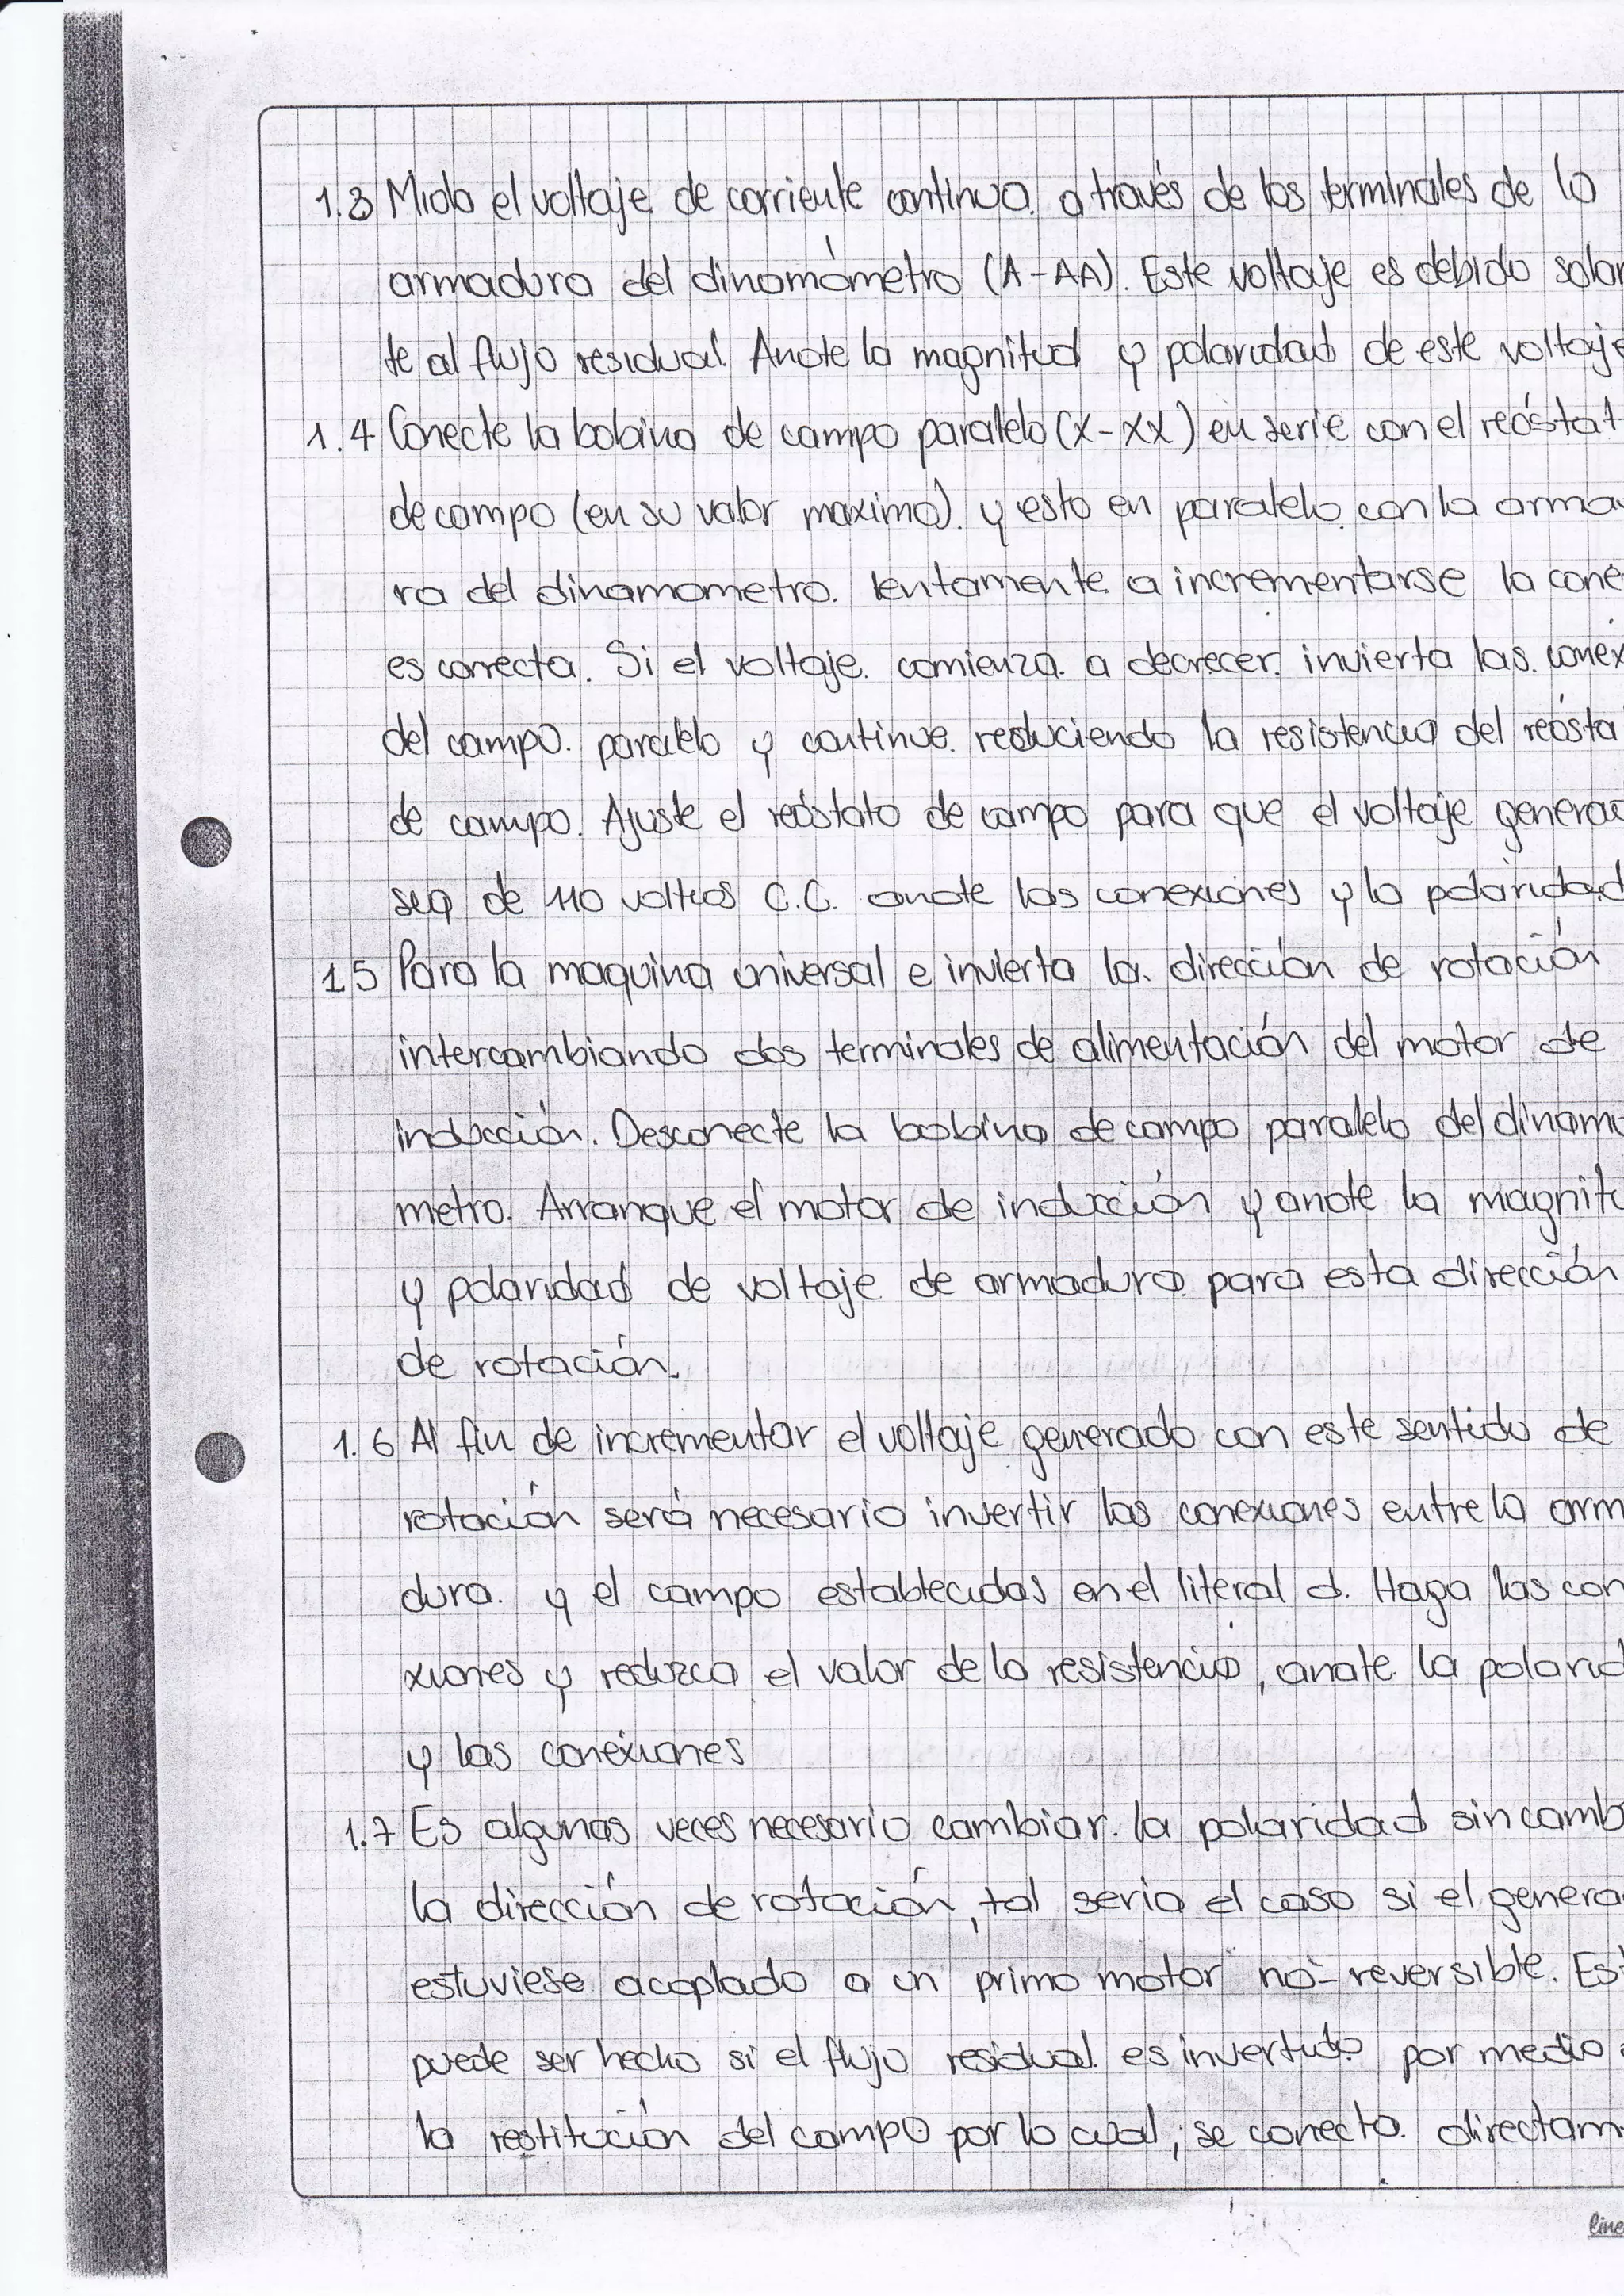 1.3 Mida el voltaje de corriente continua a través de los terminales de la
armadura del dinamómetro (A-AA). Este voltaje es debido solam
te al flujo residual. Anote la magnitud y polaridad de este voltaje
1.4 Conecte la bobina de campo paralelo (X-XX) en serie con el reóstat
de campo (en su valor maximo). y esto en paralelo con la arma
ra del dinamometro. lentamente a incrementarse la cone
es correcta. Si el voltaje comienza a decrecer. invierta las conex
del campo. paralelo y continue reduciendo la resistencia del reósta
de campo. Ajuste el reóstato de campo para que el voltaje genera
sea de 110 voltios C.C. anote las conexiones y la polaridad
1.5 Para la maquina universal e invierta la dirección de rotación
intercambiando dos terminales de alimentación del motor de
inducción. Desconecte la bobina de campo paralelo del dinamo
metro. Arranque el motor de inducción y anote la magnitu
y polaridad de voltaje de armadura para esta dirección
de rotación.
1.6 Al fin de incrementar el voltaje generado con este sentido de
rotación será necesario invertir las conexiones entre la arm
dura y el campo establecidas en el literal d. Haga las con
xiones y reduzca el valor de la resistencia, anote la polarid
y las conexiones
1.7 Es algunas veces necesario cambiar la polaridad sin camb
la dirección de rotación, tal seria el caso si el genera
estuviese acoplado a un primo motor no-reversible. Est
puede ser hecho si el flujo residual es invertido por medio
la restitución del campo por lo cual, se conecta directam
line